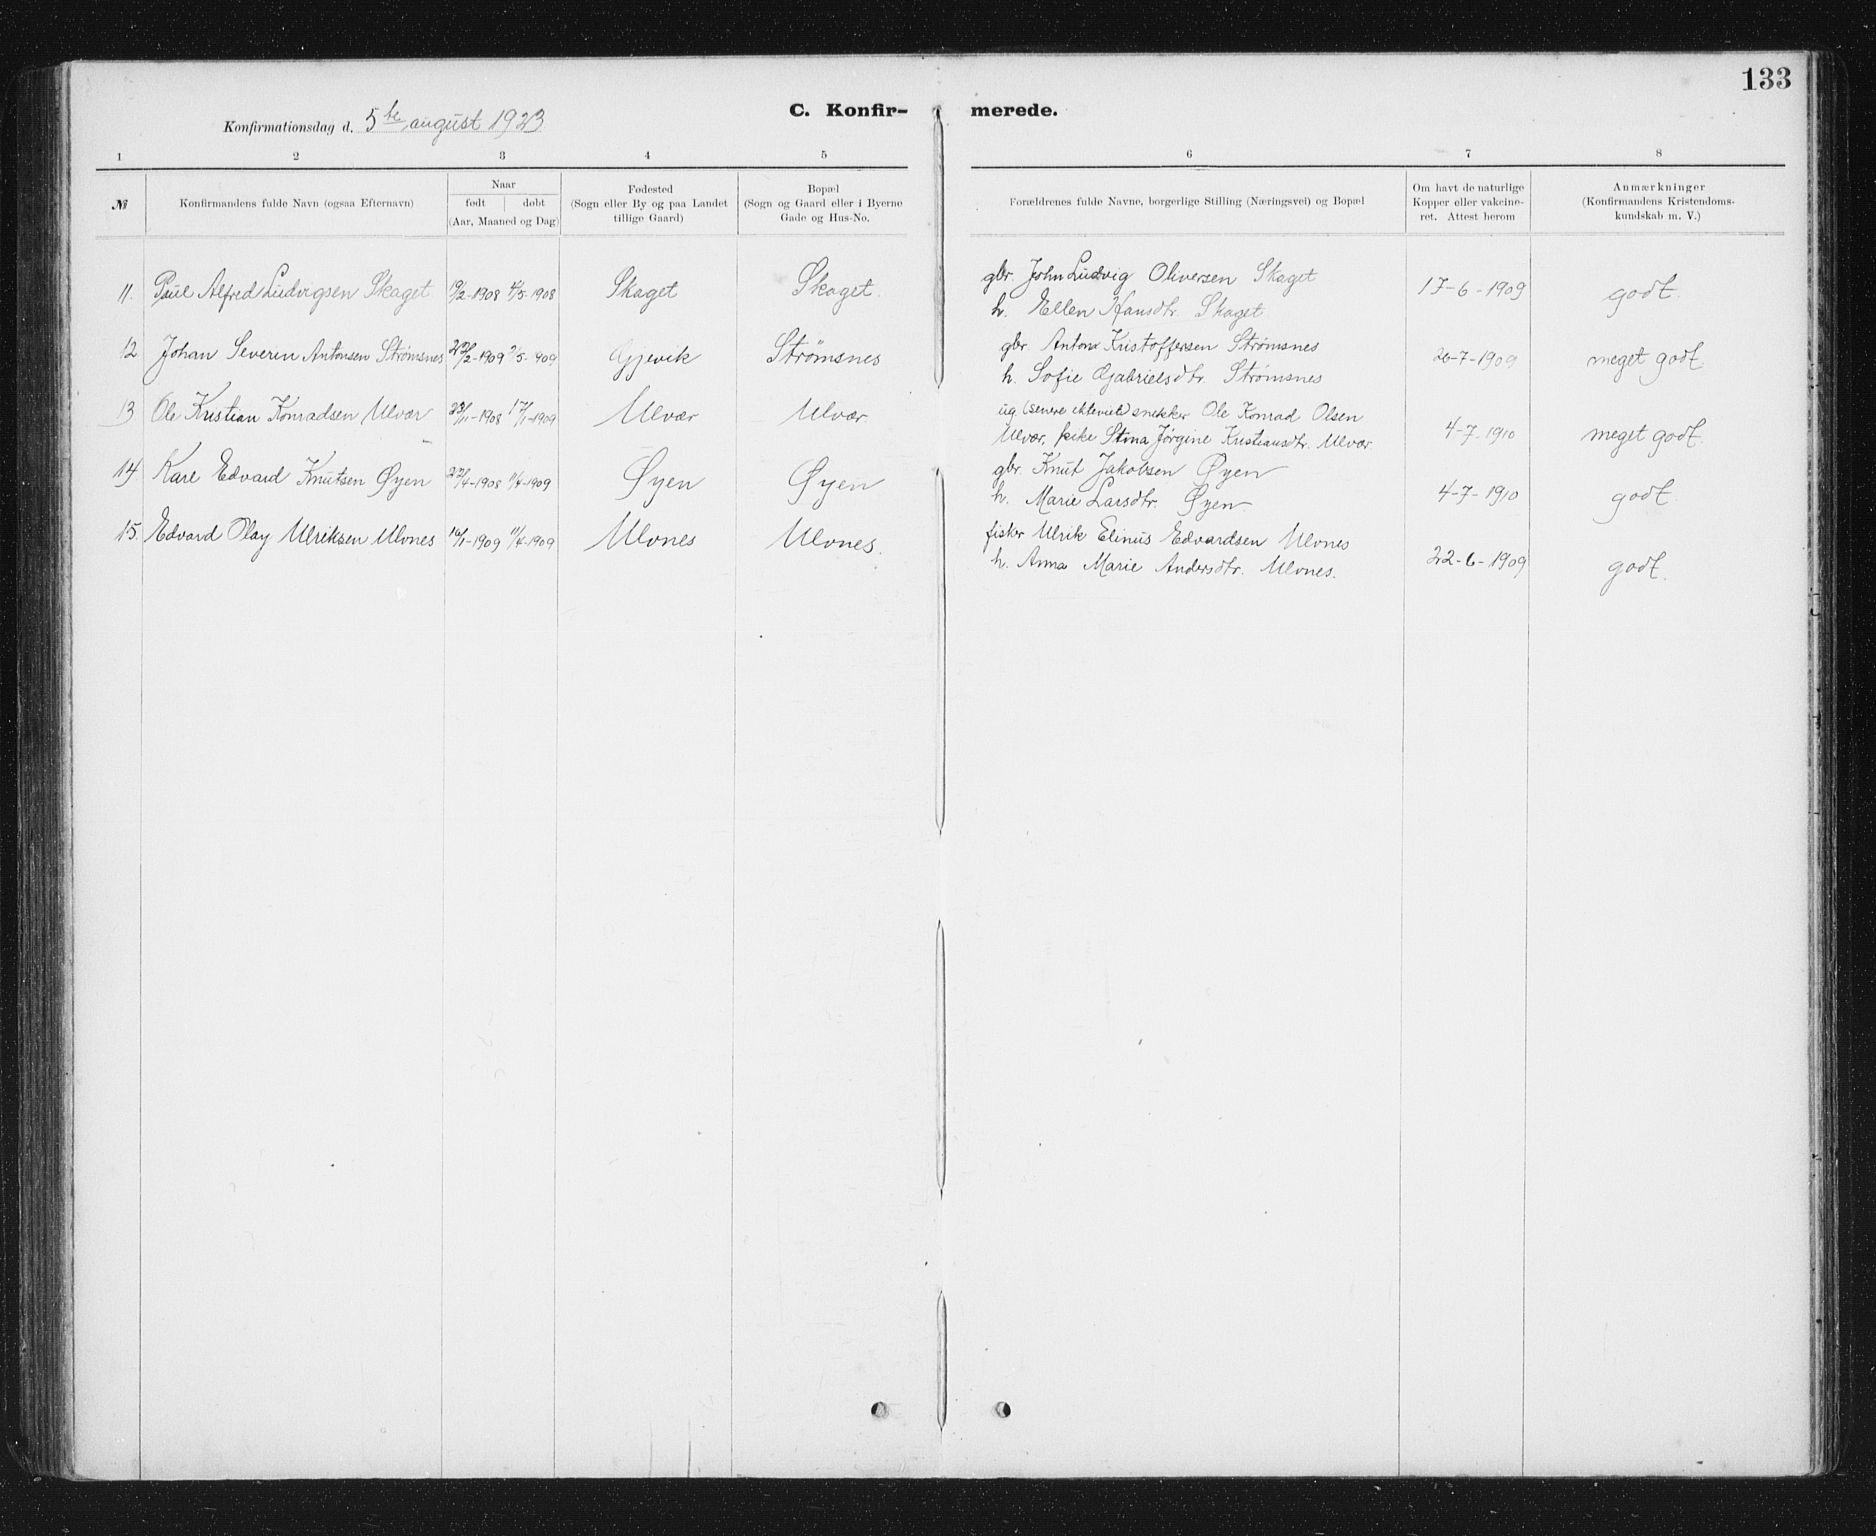 133
C. Konfir- merede.
Konfirmationsdag d. 5te august 1923
1 2 3 4 5 6 7 8
№ Konfirmandens fulde Navn (ogsaa Efternavn) Naar født døbt (Aar, Maaned og Dag) Fødested (Sogn eller By og paa Landet tillige Gaard) Bopæl (Sogn og Gaard eller i Byerne Gade og Hus-No. Forældrenes fulde Navne, borgerlige Stilling (Næringsvei) og Bopæl Om havt de naturlige Kopper eller vakcine- ret. Attest herom Anmærkninger (Konfirmandens Kristendoms- kundskab m. V.)
11. Paul Alfred Ludvigsen Skaget 19/2-1908 4/5-1908 Skaget Skaget. gbr. John Ludvig Oliversen Skaget 17-6-1909 godt.
h. Ellen Hansdtr. Skaget
12 Johan Severin Antonsen Strømsnes 2/5-1909 Gjevik Strømsnes gbr. Anton Kristoffersen Strømsnes 20-7-1909 meget godt.
h. Sofie Gabrielsdtr. Strømsnes
13 Ole Kristian Konradsen Ulvær 17/1-1909 Ulvær Ulvær. ug. (senere ) snekker Ole Konrad Olsen
Ulvær, pike Stina Jørgine Kristiansdtr. Ulvær. 4-7-1910 meget godt.
14. Kare Edvard Knutsen Øyen 11/4-1909 Øyen Øyen gbr. Knut Jakobsen Øyen
h. Marie Larsdtr. Øyen 4-7-1910 godt.
15. Edvard Olay Ulriksen Ulvnes 16/1-1909 11/4-1909 Ulvnes Ulvnes. fisker Ulrik Elinus Edvardsen Ulvnes
h. Anna Marie Andersdtr. Ulvnes. 22-6-1909 godt.